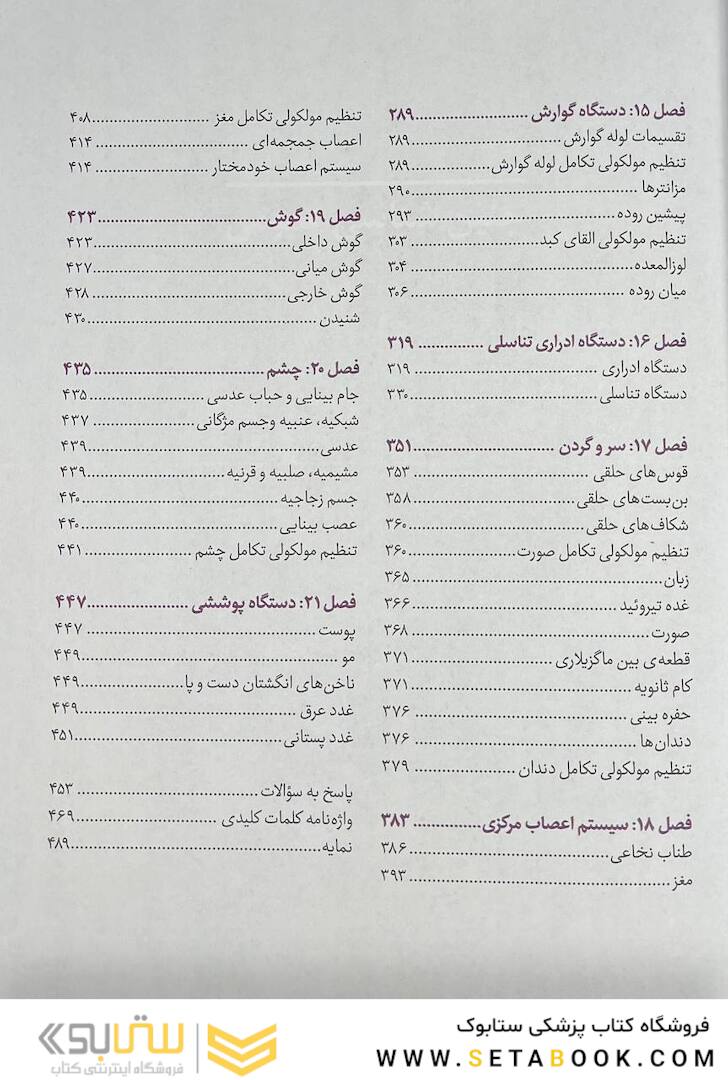 فصل ۱۵: دستگاه گوارش..........................۲۸۹
تقسیمات لوله گوارش ..................................۲۸۹
تنظیم مولکولی تکامل لوله گوارش..................۲۸۹
مزانترها ..................................................۲۹۰
پیشین روده ............................................ ۲۹۳
تنظیم مولکولی القای کبد............................ ۳۰۳
لوزالمعده.................................................. ۳۰۴
میان روده ................................................ ۳۰۶
فصل ۱۶: دستگاه ادراری تناسلی ............... ۳۱۹
دستگاه ادراری ......................................... ۳۱۹
دستگاه تناسلی..........................................۳۳۰
فصل ۱۷: سر و گردن ................................۳۵۱
قوس‌های حلقی ........................................ ۳۵۳
بن‌بست‌های حلقی......................................۳۵۸
شکاف‌های حلقی........................................۳۶۰
تنظیم مولکولی تکامل صورت........................۳۶۰
زبان......................................................... ۳۶۵
غده تیروئید .............................................. ۳۶۶
صورت...................................................... ۳۶۸
قطعه‌ی بین ماگزیلاری ................................ ۳۷۱
کام ثانویه ................................................. ۳۷۱
حفره بینی ................................................ ۳۷۶
دندان‌ها ................................................... ۳۷۶
تنظیم مولکولی تکامل دندان ....................... ۳۷۹
فصل ۱۸: سیستم اعصاب مرکزی............... ۳۸۳
طناب نخاعی.............................................. ۳۸۶
مغز.......................................................... ۳۹۳
تنظیم مولکولی تکامل مغز ...........................۴۰۸
اعصاب جمجمه‌ای ................................... ۴۱۴
سیستم اعصاب خودمختار .......................... ۴۱۴
فصل ۱۹: گوش.......................................۴۲۳
گوش داخلی.............................................۴۲۳
گوش میانی..............................................۴۲۷
گوش خارجی............................................ ۴۲۸
شنیدن ....................................................۴۳۰
فصل ۲۰: چشم .......................................۴۳۵
جام بینایی و حباب عدسی ..........................۴۳۵
شبکیه، عنبیه وجسم مژگانی....................... ۴۳۷
عدسی......................................................۴۳۹
مشیمیه، صلبیه و قرنیه ..............................۴۳۹
جسم زجاجیه ............................................۴۴۰
عصب بینایی.............................................۴۴۰
تنظیم مولکولی تکامل چشم ........................ ۴۴۱
فصل ۲۱: دستگاه پوششی.......................۴۴۷
پوست ..................................................... ۴۴۷
مو ...........................................................۴۴۹
ناخن‌های انگشتان دست و پا.......................۴۴۹
غدد عرق ..................................................۴۴۹
غدد پستانی...............................................۴۵۱
پاسخ به سؤالات ......................................... ۴۵۳
واژه‌نامه کلمات کلیدی ................................۴۶۹
نمایه.........................................................۴۸۹
فروشگاه کتاب پزشکی ستابوک
WWW.SETABOOK.COM
ستابوک
فروشگاه اینترنتی کتاب